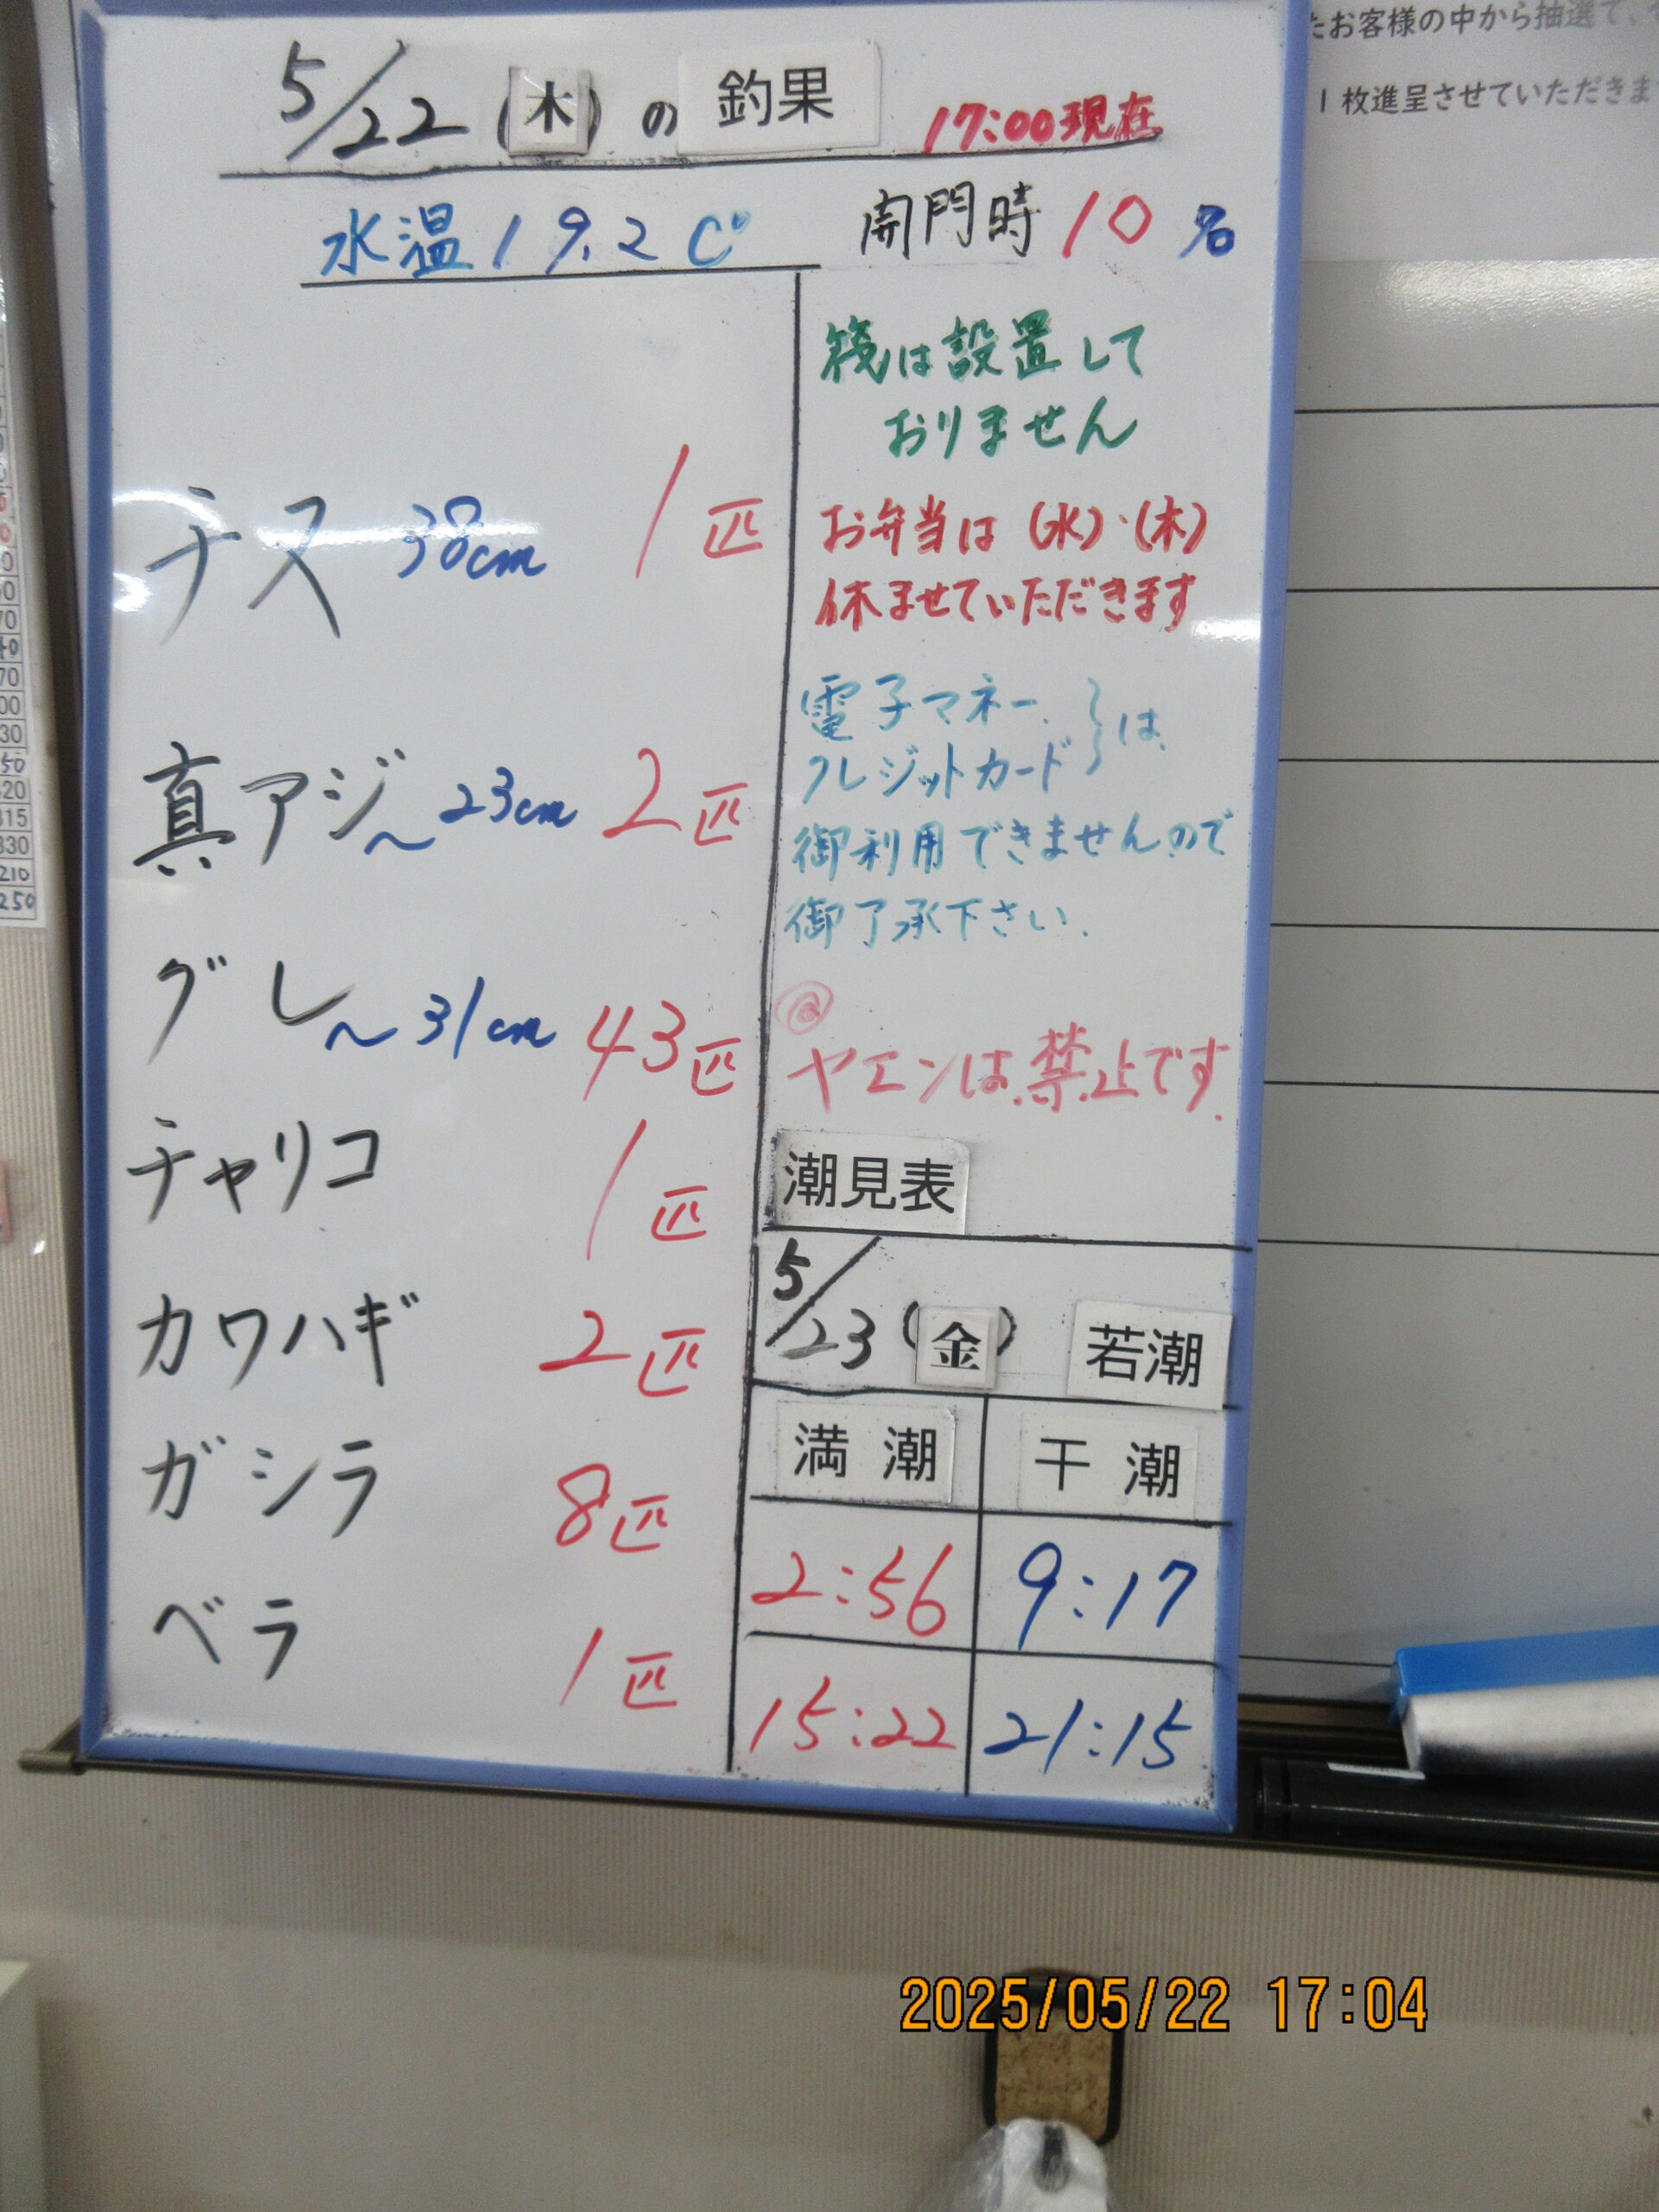 5/22(木)の釣果 17:00現在
水温19.2C° 開門時10名
チヌ 38cm 1匹
真アジ~23cm 2匹
グレ~31cm 43匹
チャリコ 1匹
カワハギ 2匹
ガシラ 8匹
ベラ 1匹
筏は設置して
おりません
お弁当は(水)・(木)
休ませていただきます
電子マネー、
クレジットカード}は
御利用できませんので
御了承下さい.
◎
ヤエンは禁止です.
潮見表
5/23(金) 若潮
満潮 干潮
2:56 9:17
15:22 21:15
たお客様の中から抽選で、
1枚進呈させていただきま
70
00
30
50
315
330
210
250
2025/05/22 17:04